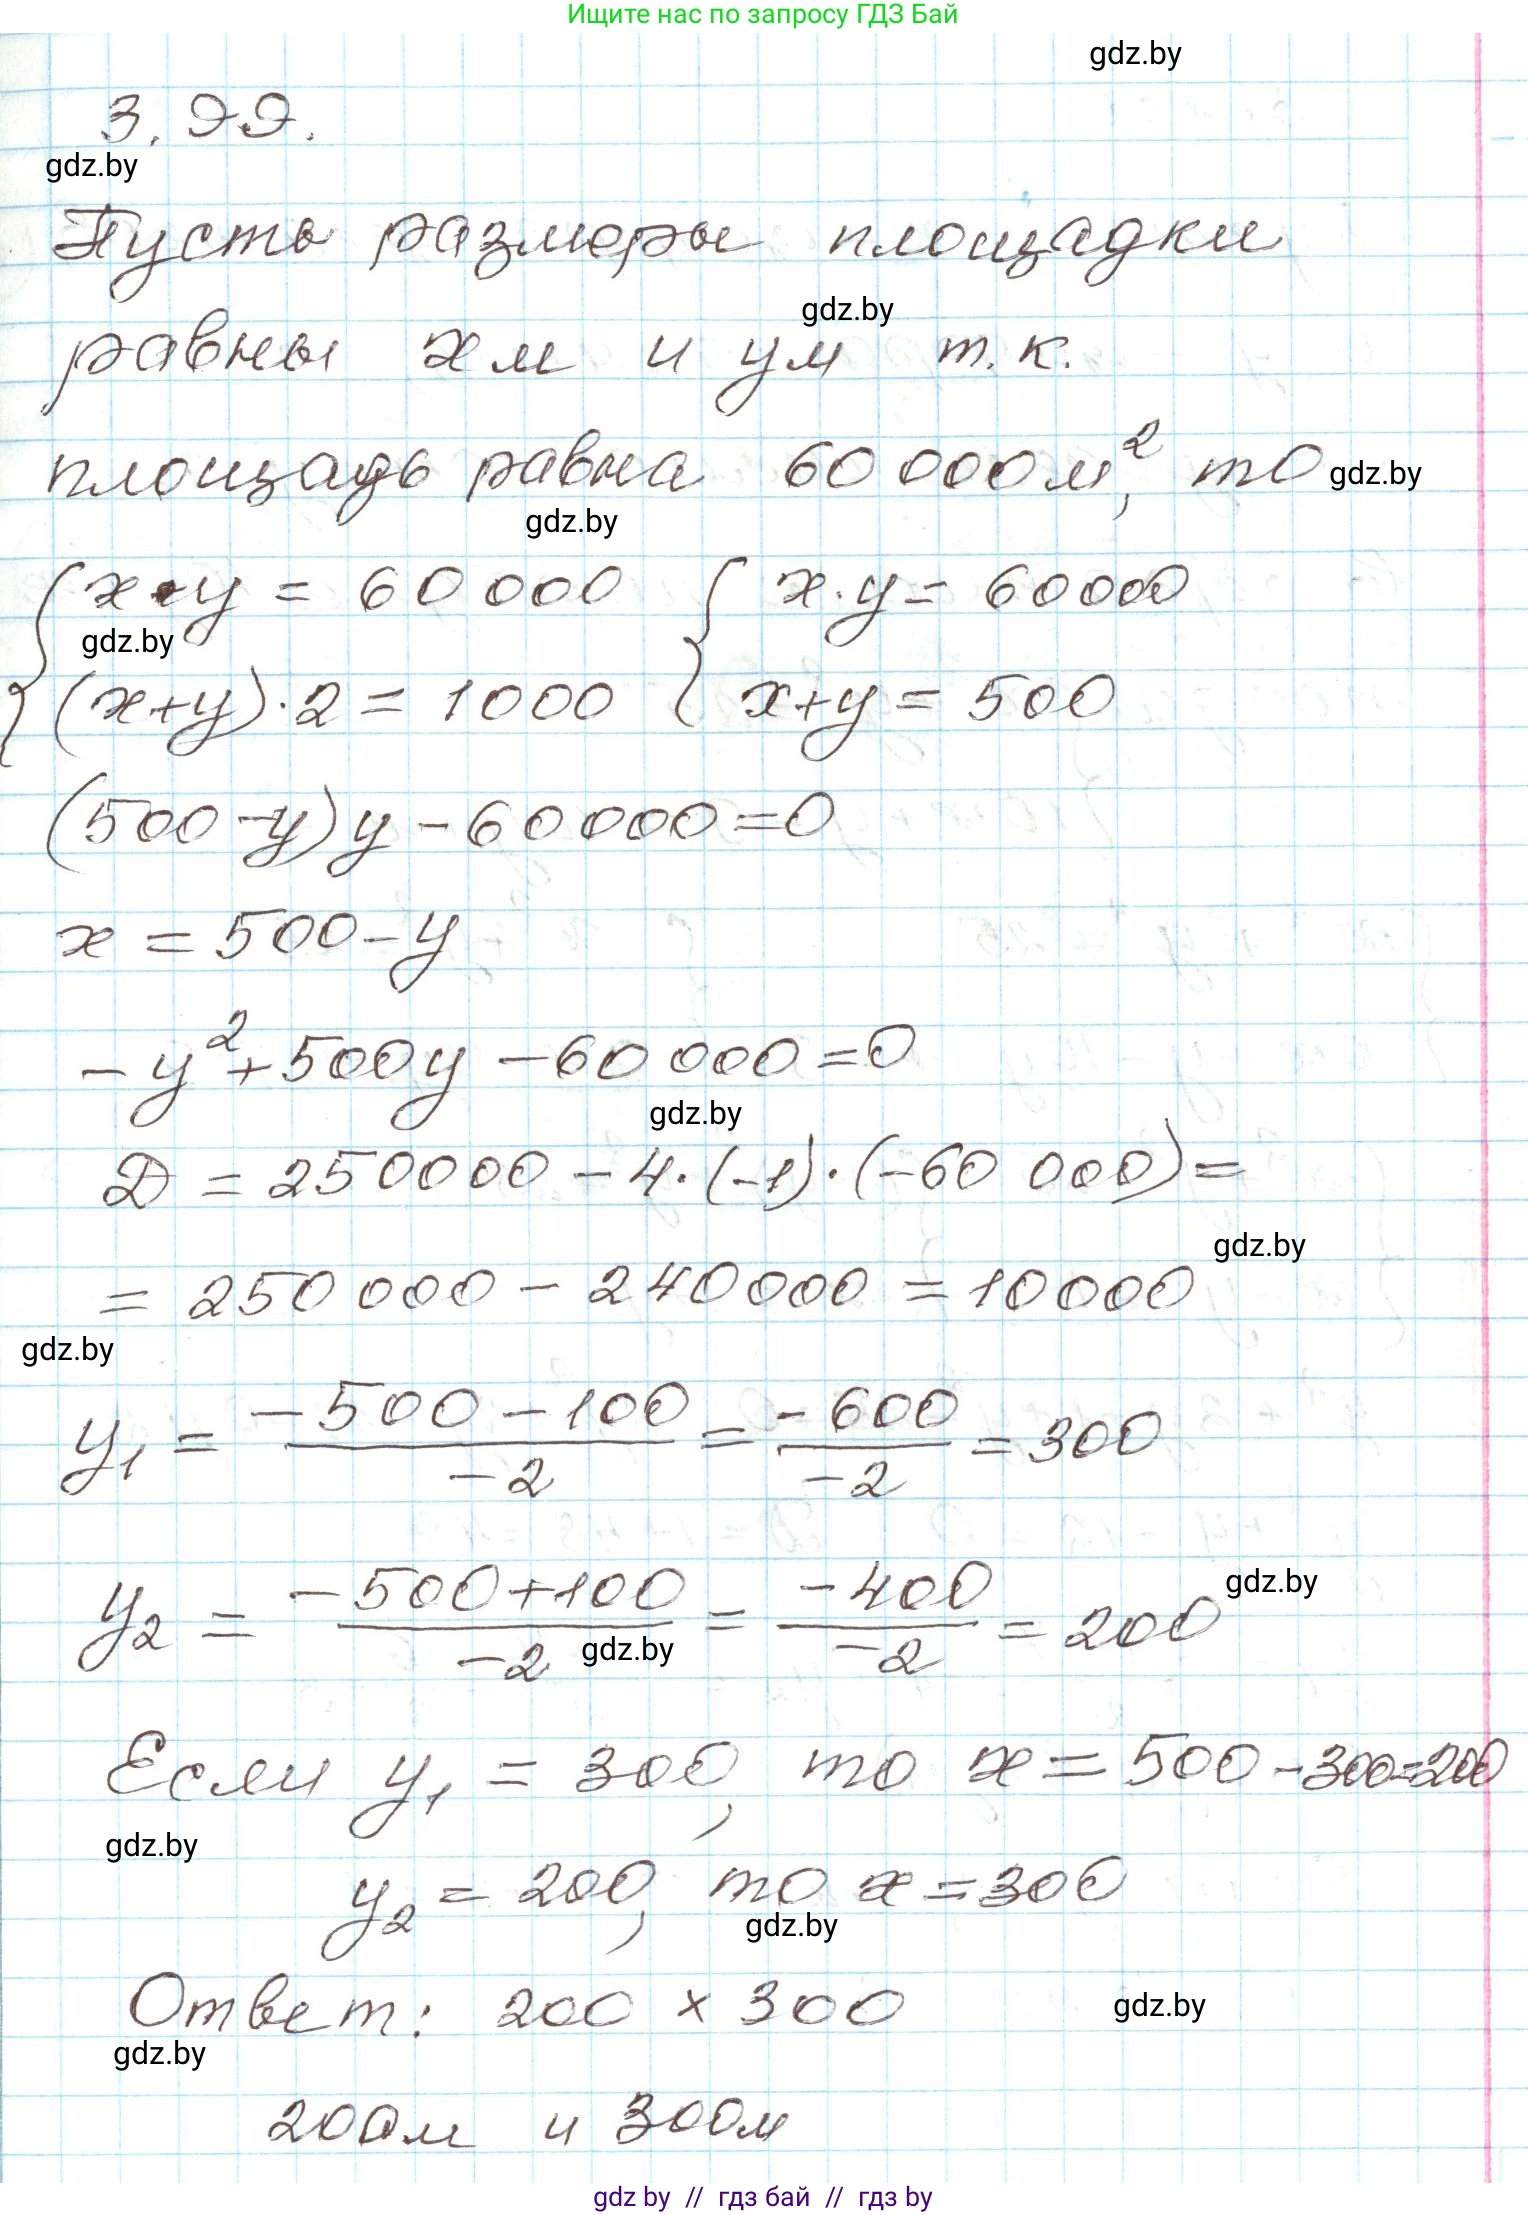 Ищите нас по запросу ГДЗ Бай
gdz.by
3.99.
gdz.by
Пусть размеры площадки
gdz.by
равны x м и y м т.к.
площадь равна 60 000 м², то gdz.by
gdz.by
{ x·y = 60 000 { x·y = 60000
gdz.by
(x+y)·2 = 1000 x+y = 500
(500-y)y - 60000 = 0
x = 500-y
-y²+500y - 60 000 = 0
gdz.by
D = 250000 - 4·(-1)·(-60 000) =
gdz.by
= 250 000 - 240000 = 10000
gdz.by
y₁ = (-500-100)/(-2) = (-600)/(-2) = 300
gdz.by
y₂ = (-500+100)/(-2) = (-400)/(-2) = 200
gdz.by
Если y₁ = 300, то x = 500-300=200
gdz.by
y₂ = 200, то x = 300
gdz.by
Ответ: 200 × 300
gdz.by
gdz.by
200м и 300м
gdz by // гдз бай // гдз by